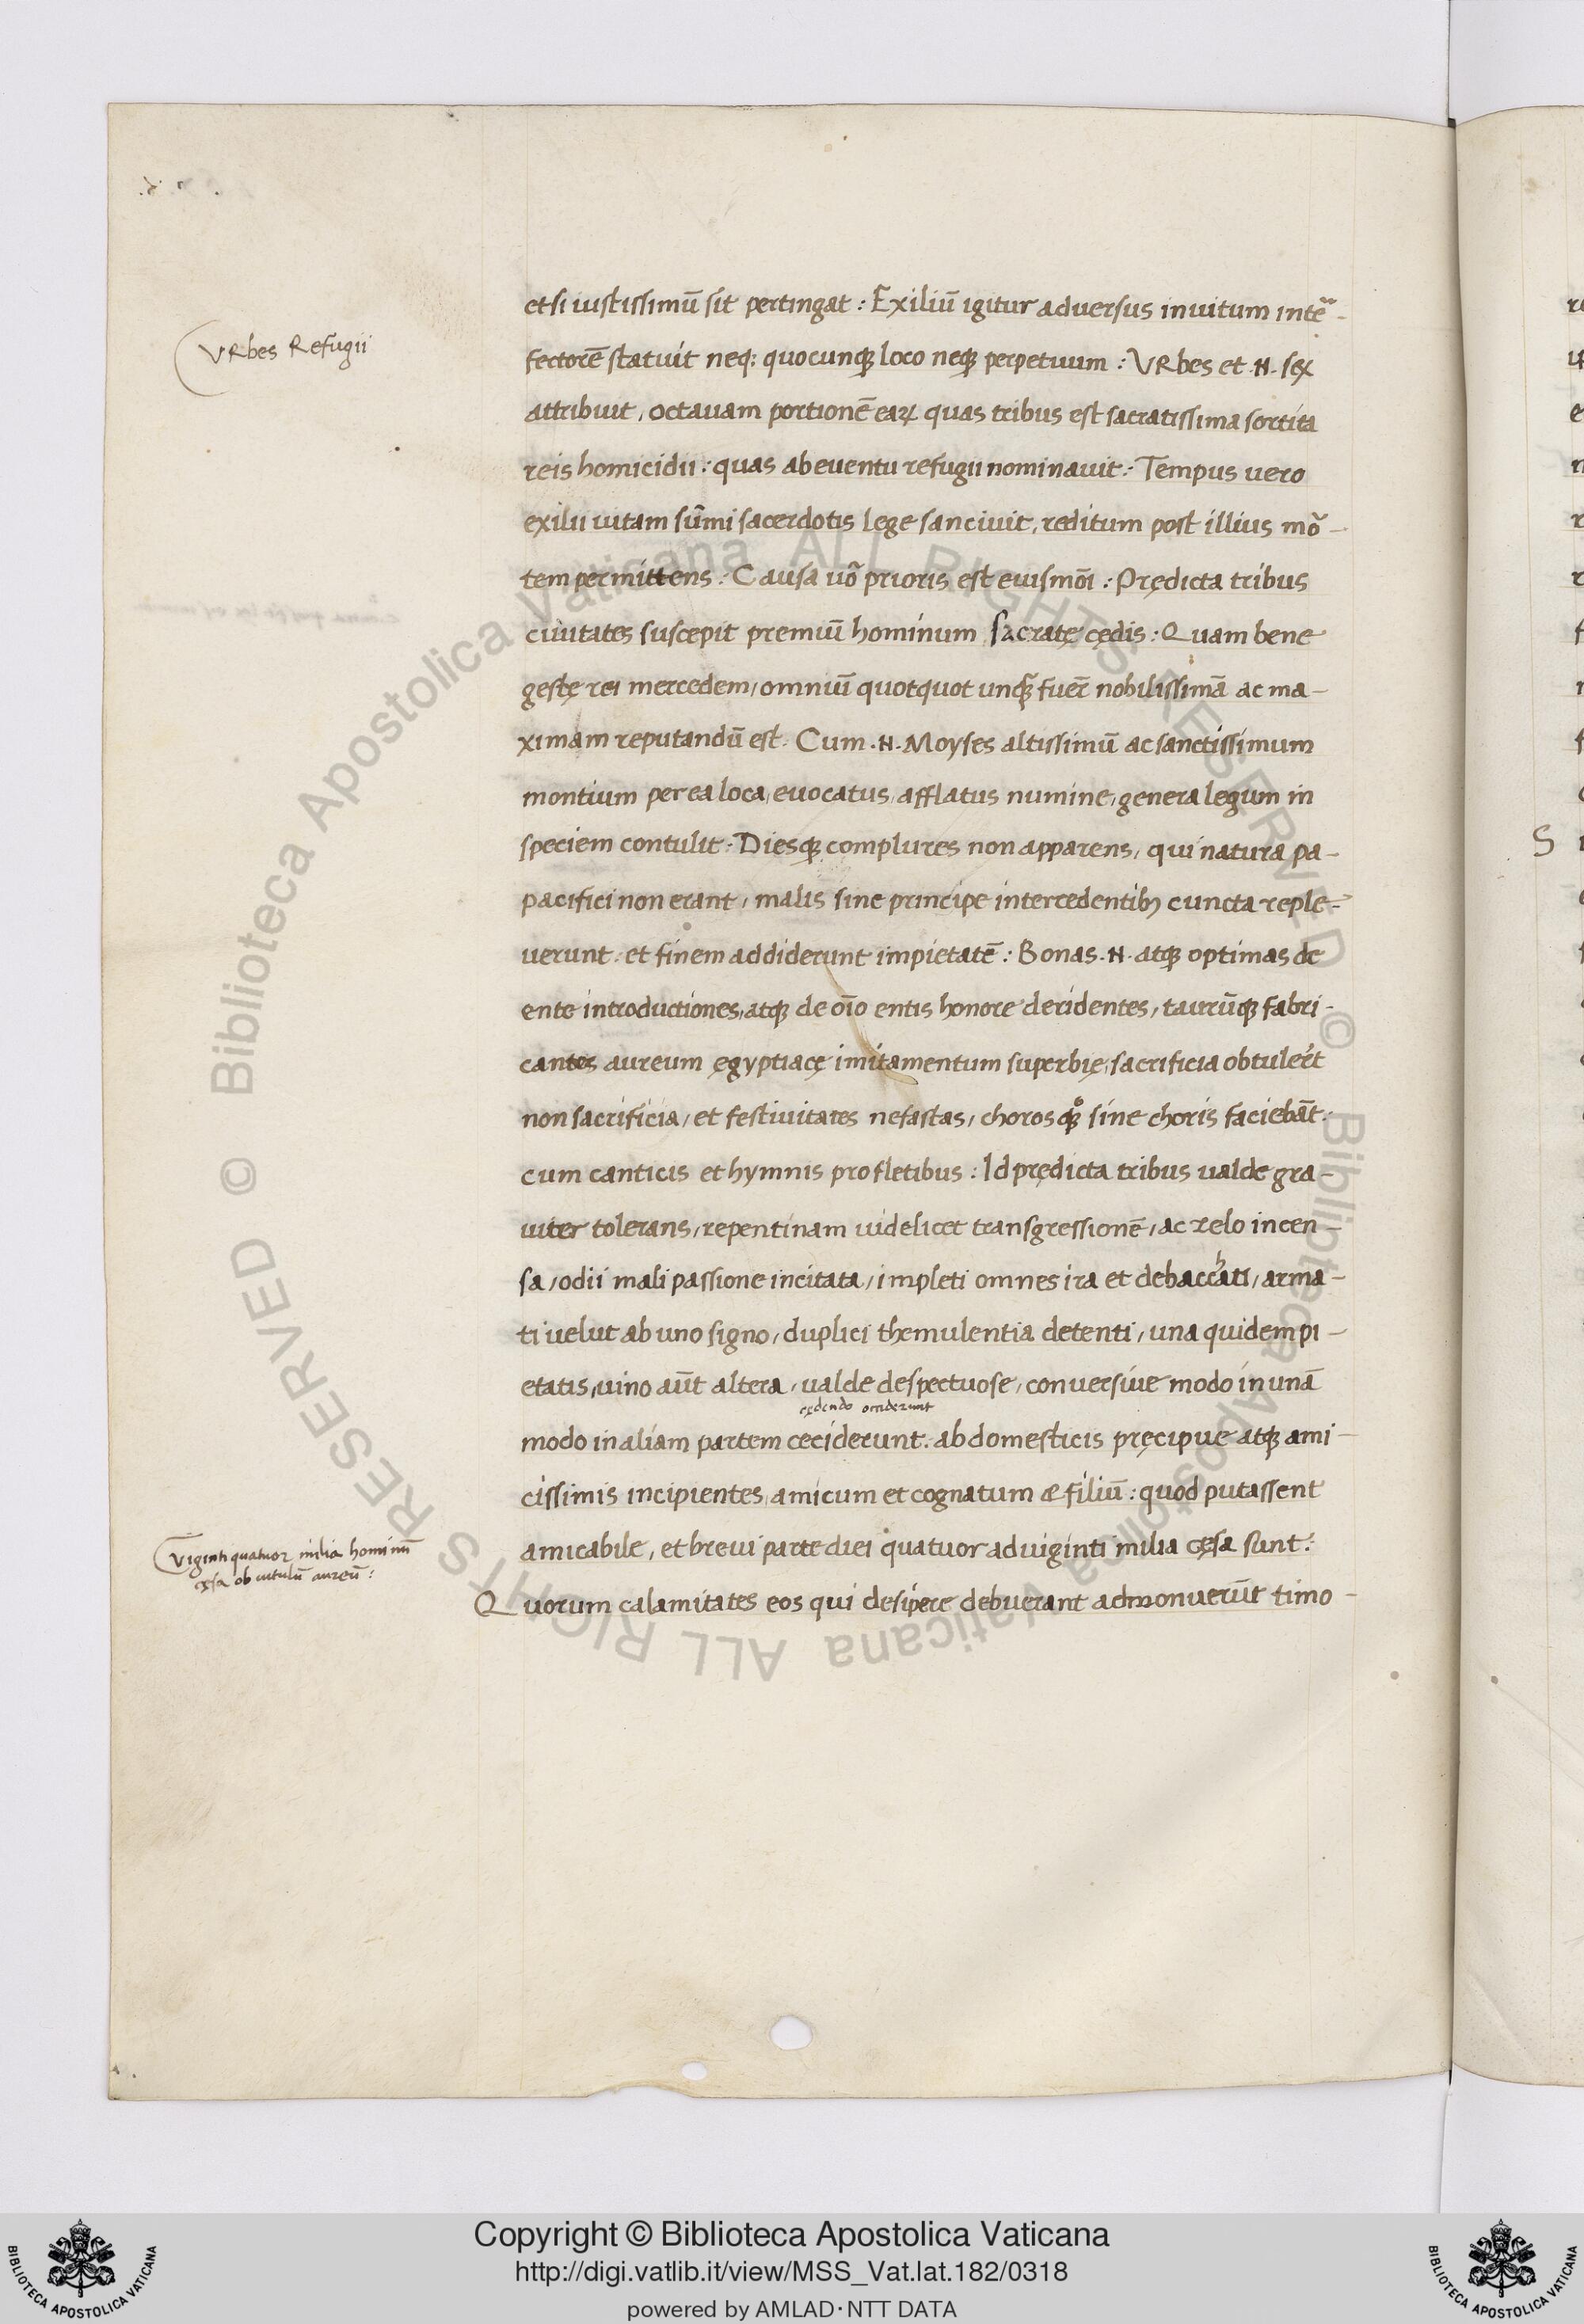 etsi iustissimū sit pertingat : Exiliū igitur adversus invitum intẽ-
URbes Refugii
fectorē statuit neq; quocunq; loco neq; perpetuum : URbes et .N. sex
attribuit, octavam portionē eaꝝ quas tribus est sacratissima sortita
reis homicidii : quas ab euentu refugii nominavit : Tempus uero
exilii uitam sūmi sacerdotis lege sancivit, reditum post illius mõ-
tem permittens : Causa uõ prioris est euismōi : Prędicta tribus
ciuitates suscepit premiū hominum sacratę cędis : Quam bene
gestę rei mercedem, omniū quotquot unq̃ fuer̄ nobilissimā ac ma-
ximam reputandū est. Cum .N. Moyses altissimū ac sanctissimum
montium per ea loca, euocatus, afflatus numine, genera legum in
speciem contulit. Diesq; complures non apparens, qui natura pa-
pacifici non erant, malis sine principe intercedentibꝫ cuncta reple-
uerunt : et finem addiderunt impietatē : Bonas .N. atq; optimas de
ente introductiones, atq; de oīo entis honore deridentes, taurūq; fabri-
cantes aureum ęgyptiacę imitamentum superbię, sacrificia obtuler̄t
non sacrificia, et festiuitates nefastas, chorosq; sine choris faciebāt.
cum canticis et hymnis pro fletibus : Id prędicta tribus ualde gra-
uiter tolerans, repentinam uidelicet transgressionē, ac zelo incen-
sa, odii mali passione incitata, impleti omnes ira et debacchati, arma-
ti uelut ab uno signo, duplici themulentia detenti, una quidem pi-
etatis, uino aūt altera, ualde despectuose, conuersive modo in unā
cędendo occiderunt
modo in aliam partem ceciderunt. ab domesticis pręcipue atq; ami-
cissimis incipientes, amicum et cognatum æ filiū : quod putassent
amicabile, et breui parte diei quatuor ad uiginti milia cęsa sunt :
Viginti quatuor milia hominū
cęsa ob uitulū aureū :
Quorum calamitates eos qui desipere debuerant admonuerūt timo-
S
Copyright © Biblioteca Apostolica Vaticana
http://digi.vatlib.it/view/MSS_Vat.lat.182/0318
powered by AMLAD·NTT DATA
BIBLIOTECA APOSTOLICA VATICANA
BIBLIOTECA APOSTOLICA VATICANA
© Biblioteca Apostolica Vaticana ALL RIGHTS RESERVED © Biblioteca Apostolica Vaticana ALL RIGHTS RESERVED